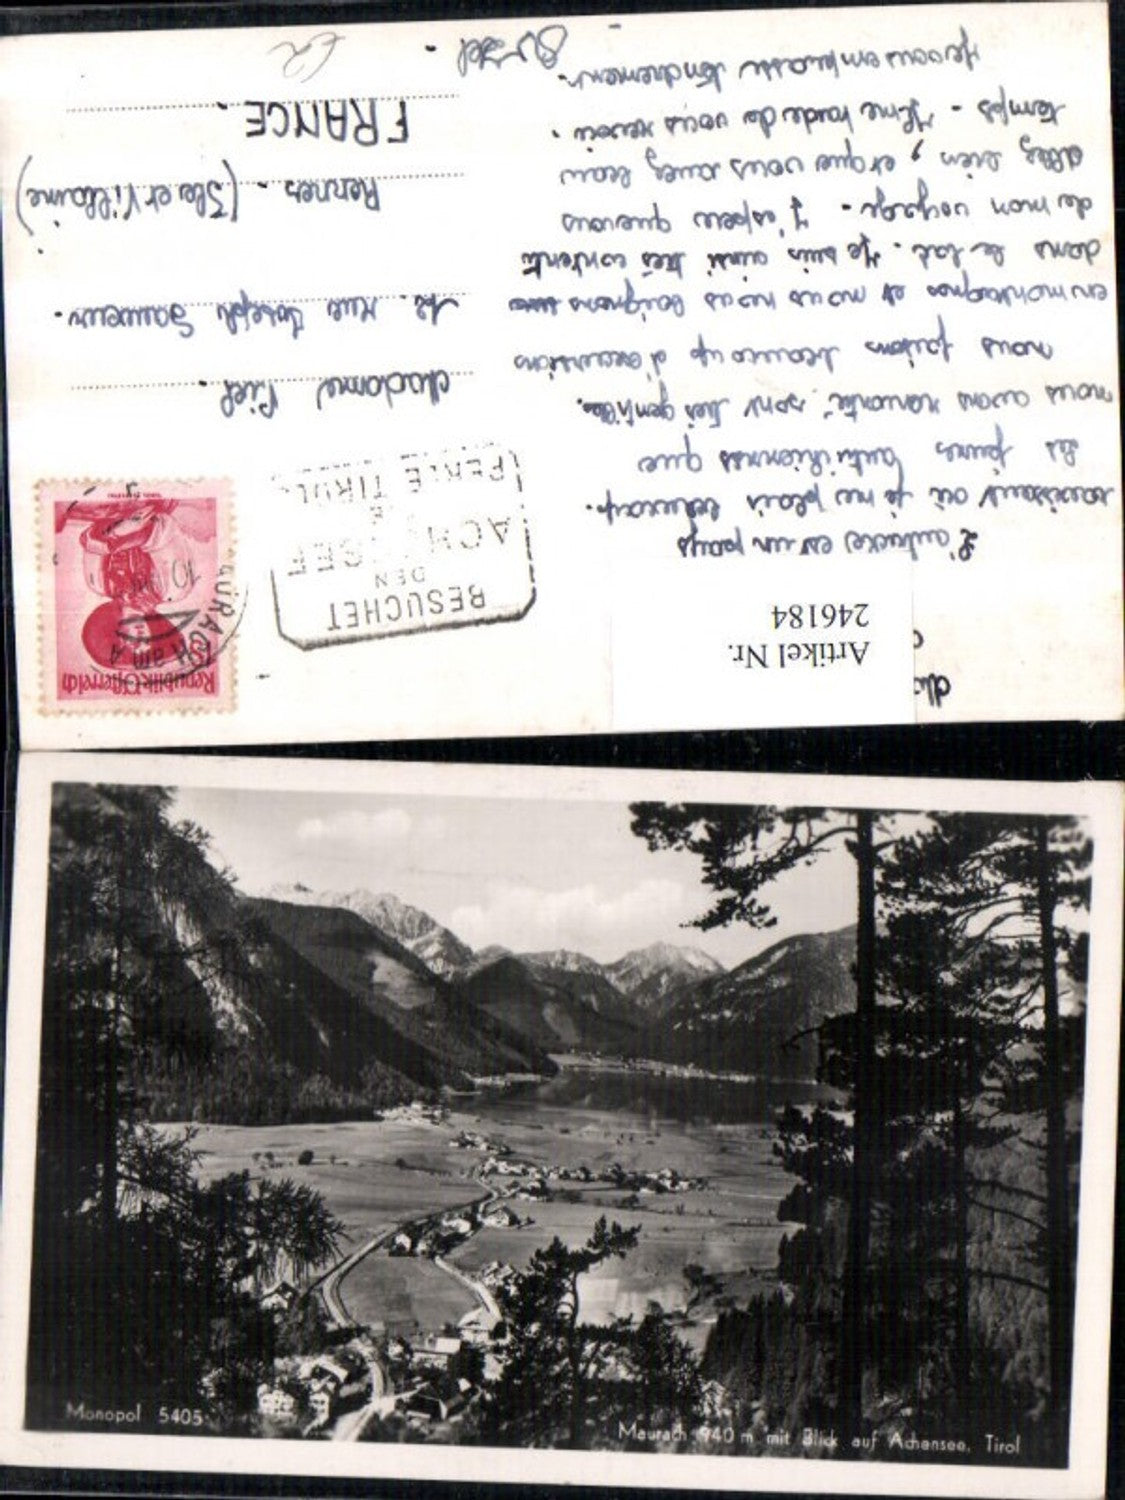 Artikel Nr.
246184
L'autriche est un pays
ravissant où je me plais beaucoup.
Les jeunes autrichiennes que
nous avons rencontré sont très gentilles.
nous faisons beaucoup d'excursions
en montagnes et nous nous baignons
dans le lac. Je suis ainsi très contente
de mon voyage. J'espère que vous
allez bien, et que vous avez beau
temps. J'ai hâte de vous revoir.
Je vous embrasse tendrement.
BESUCHET
DEN
ACHENSEE
PERLE TIROLS
Republik Österreich
Madame Piel.
12. Rue Joseph Sauveur.
Rennes. (Ille et Vilaine)
FRANCE.
Monopol 5405
Maurach 940 m mit Blick auf Achensee, Tirol